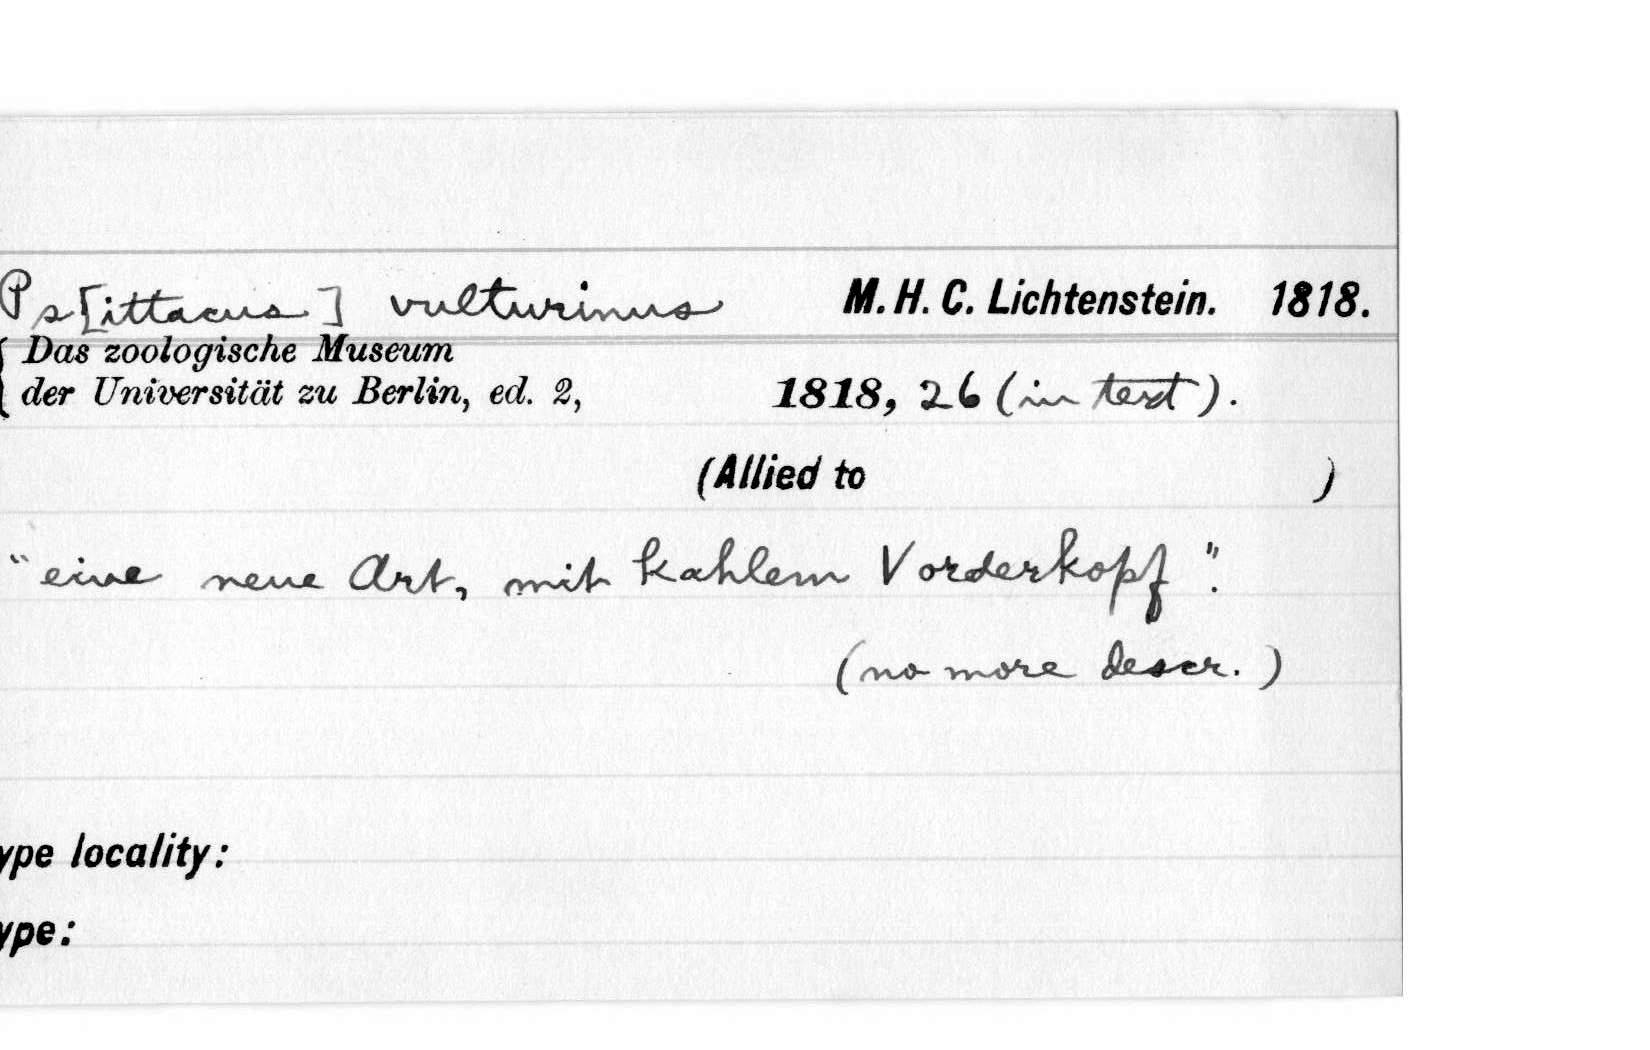 Ps[ittacus] vulturinus M. H. C. Lichtenstein. 1818.
Das zoologische Museum
der Universität zu Berlin, ed. 2, 1818, 26 (in text).
(Allied to )
"eine neue Art, mit kahlem Vorderkopf".
(no more descr.)
ype locality:
ype: